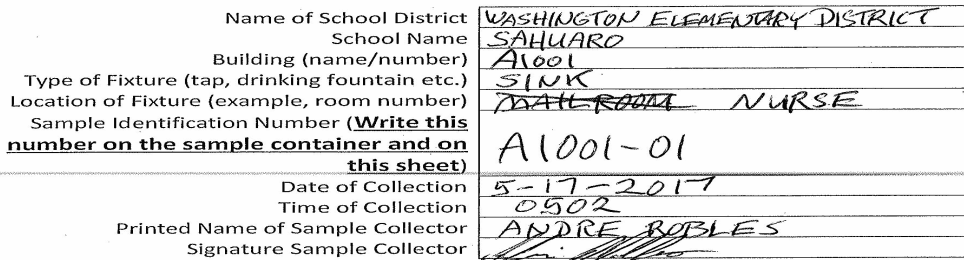 Name of School District WASHINGTON ELEMENTARY DISTRICT
School Name SAHUARO
Building (name/number) A1001
Type of Fixture (tap, drinking fountain etc.) SINK
Location of Fixture (example, room number) MAIL ROOM NURSE
Sample Identification Number (Write this
number on the sample container and on
this sheet) A1001-01
Date of Collection 5-17-2017
Time of Collection 0502
Printed Name of Sample Collector ANDRE ROBLES
Signature Sample Collector